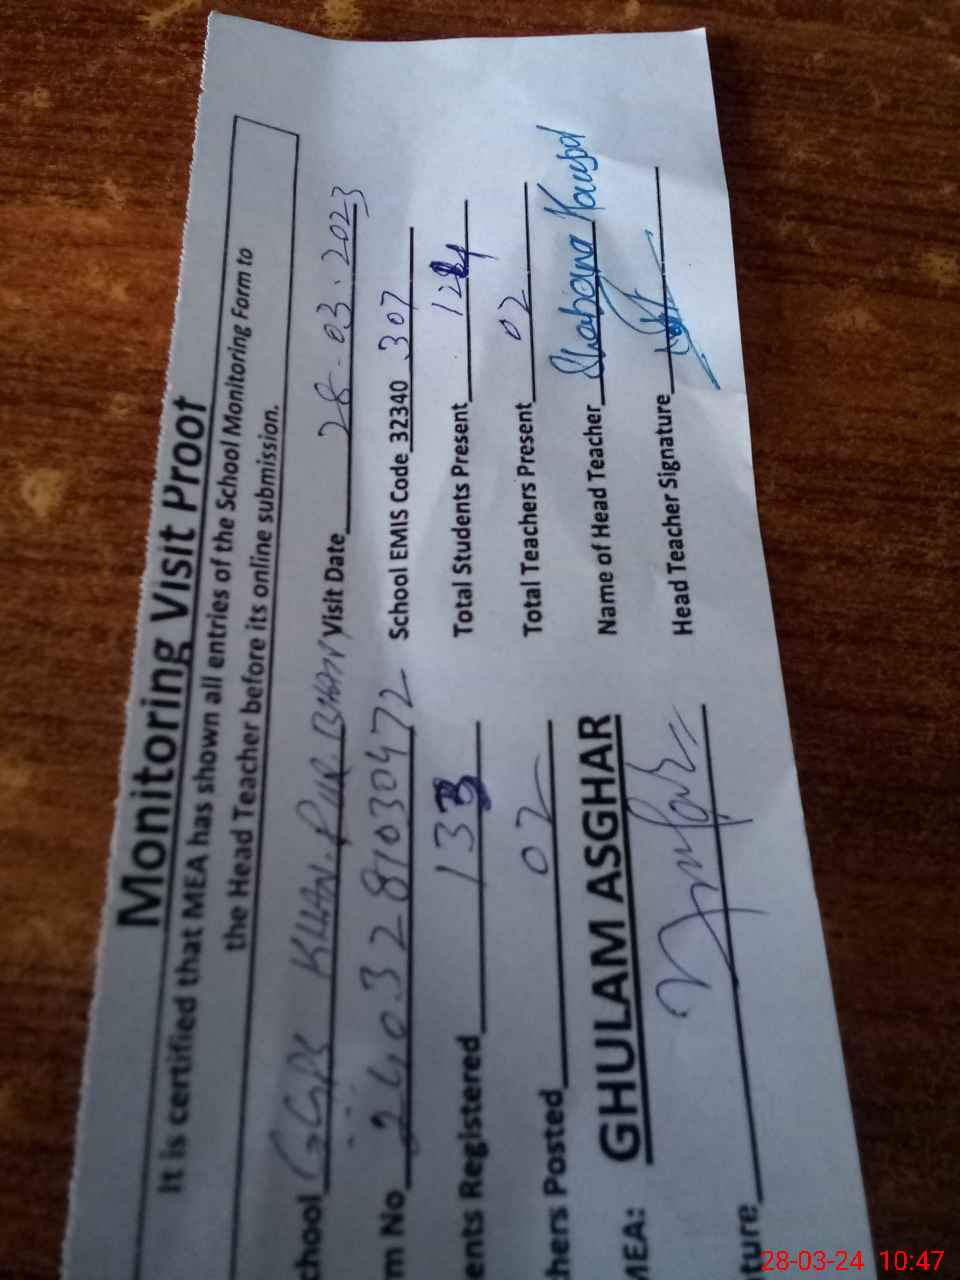 Monitoring Visit Proof
It is certified that MEA has shown all entries of the School Monitoring Form to
the Head Teacher before its online submission.
chool GGPS KHAN PUR Visit Date 28-03-2023
m No 2403281030472 School EMIS Code 32340 307
ents Registered 133 Total Students Present 124
hers Posted 02 Total Teachers Present 02
MEA: GHULAM ASGHAR Name of Head Teacher Shabana
ture Head Teacher Signature
28-03-24 10:47